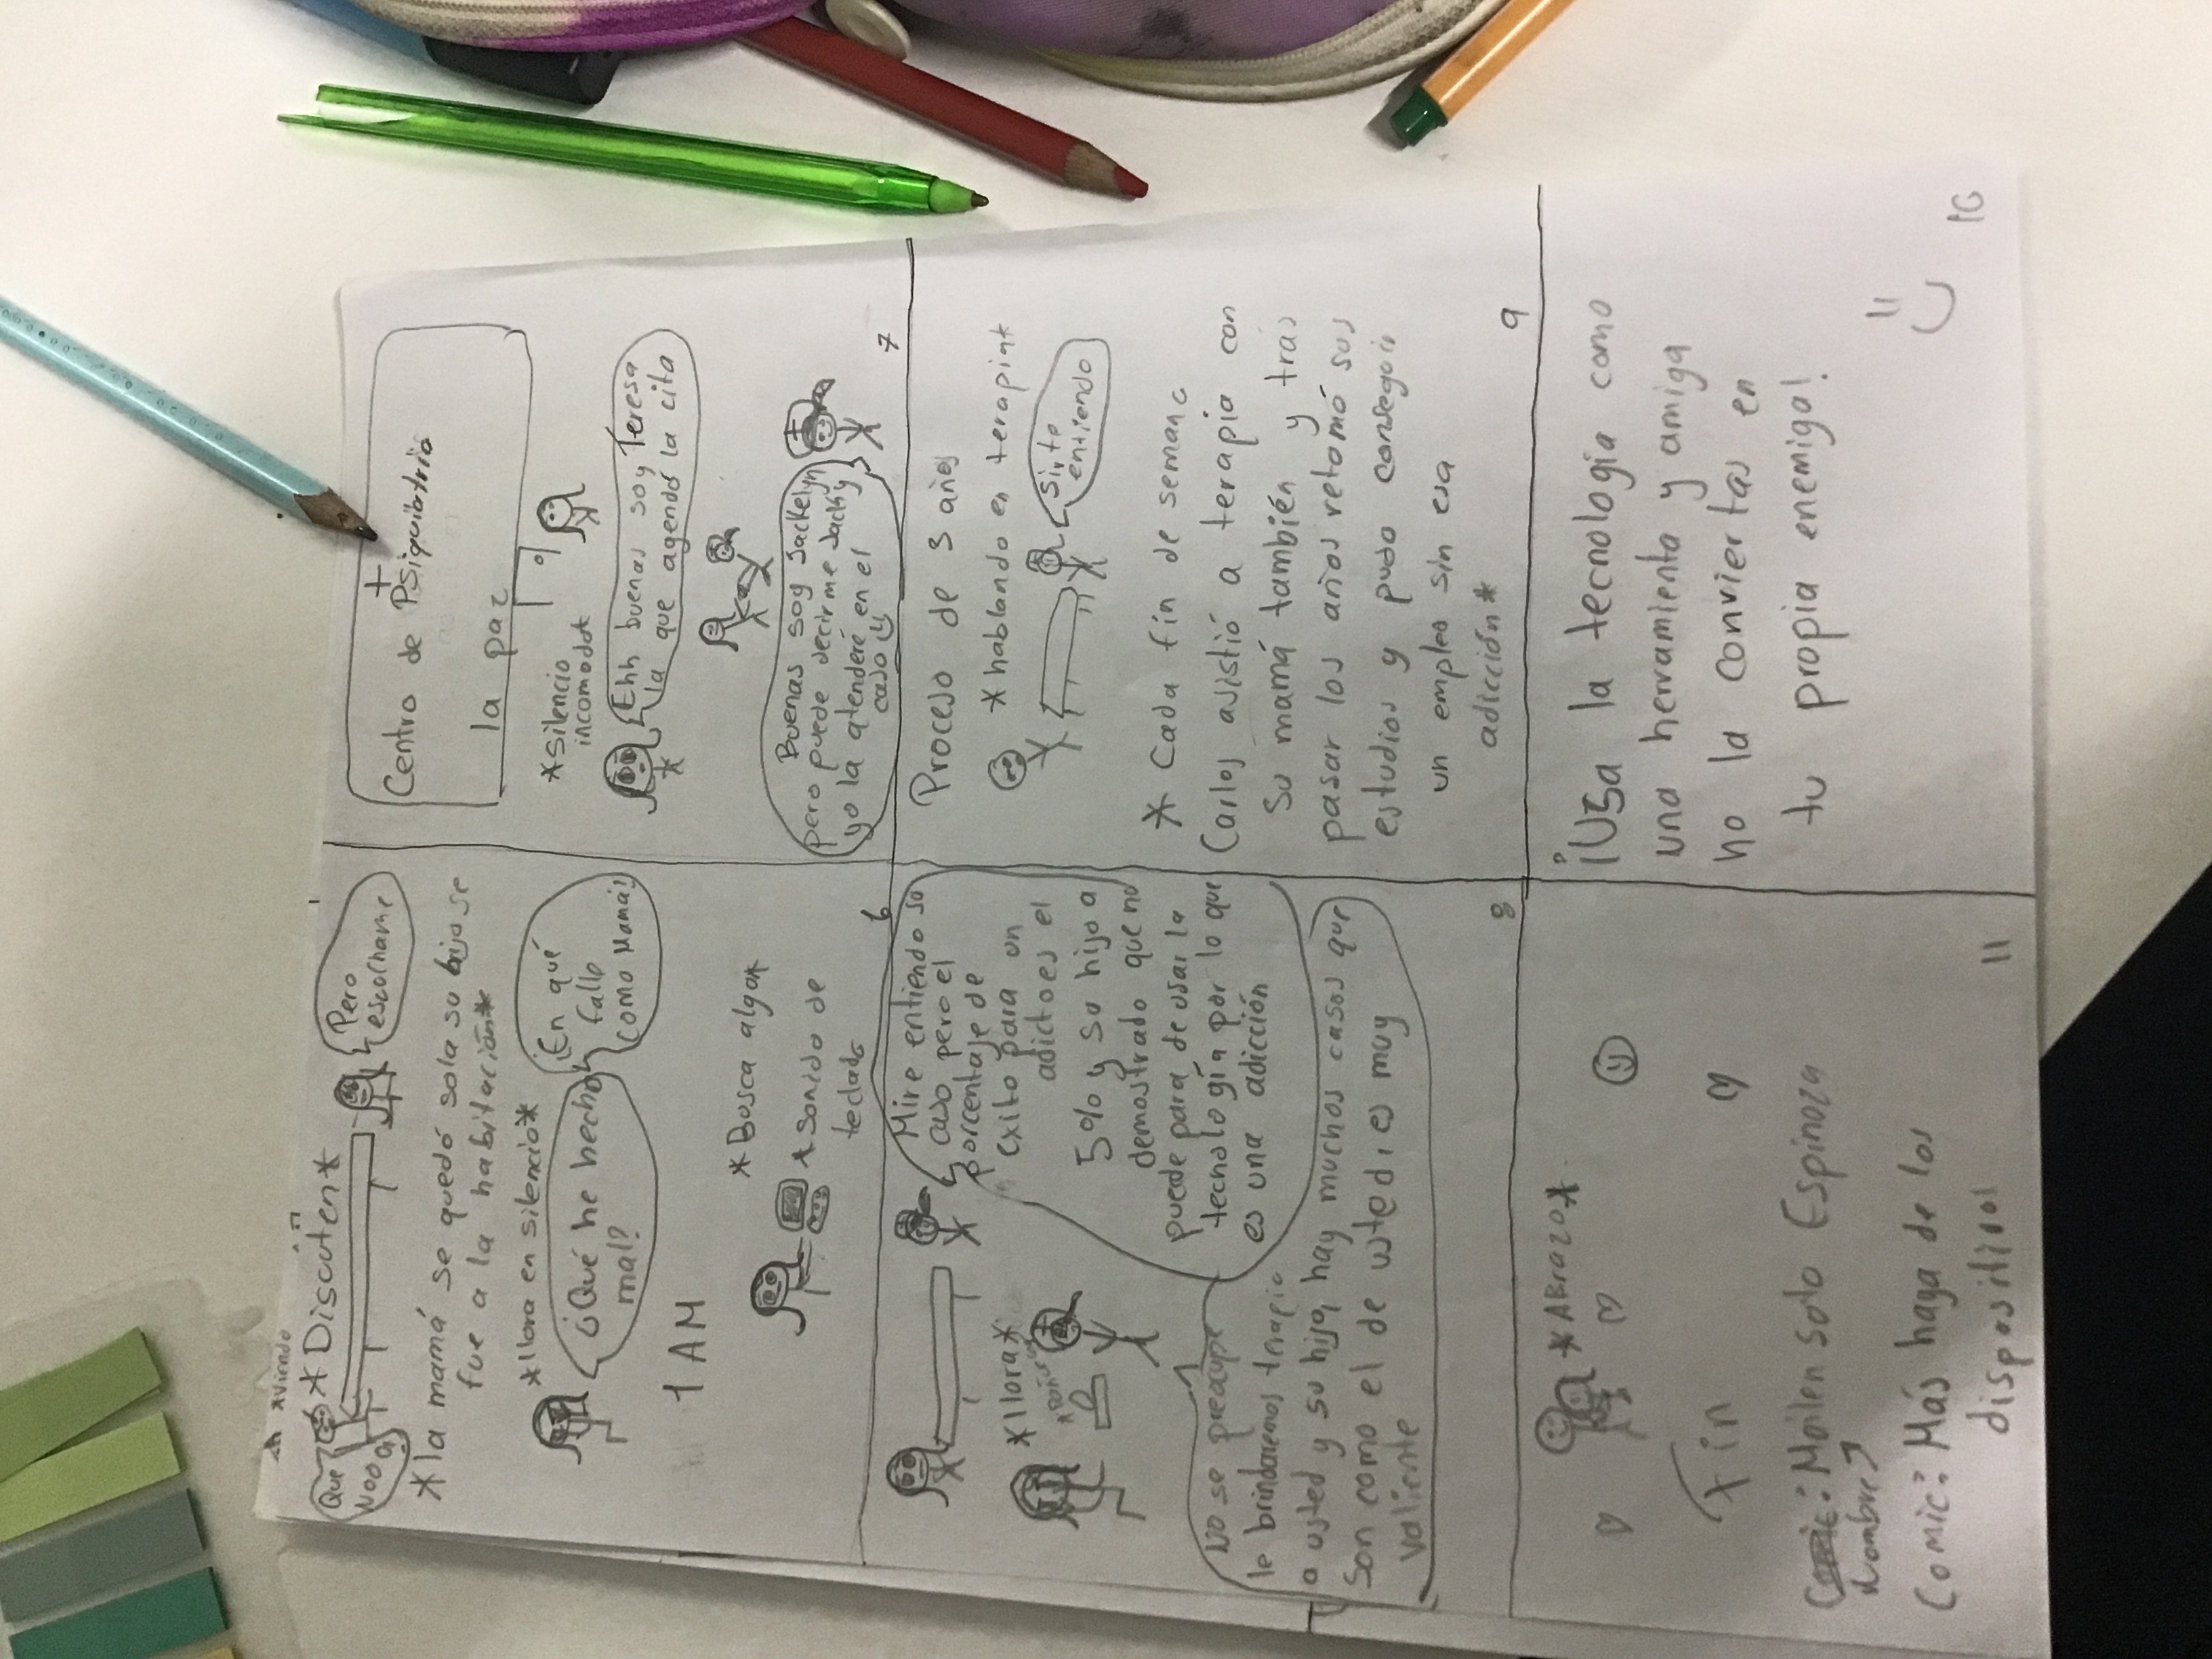 *viendo
*Discuten*
Que
Nooo
Pero
escuchame
*la mamá se quedó sola su hijo se
fue a la habitación*
*llora en silencio*
¿Qué he hecho
mal?
¡En qué
fallo
como Mamá!
1 AM
*Busca algo*
*sonido de
teclado
6
Centro de Psiquiatria
la paz
*silencio
incomodo*
Ehh buenas soy Teresa
la que agendó la cita
Buenas soy Jackelyn
pero puede decirme Jacky
yo la atenderé en el
caso
7
Mire entiendo su
caso pero el
porcentaje de
exito para un
adicto es el
5% y su hijo a
demostrado que no
puede para de usar la
tecnología por lo que
es una adicción
*llora*
No se preocupe
le brindaremos terapia
a usted y su hijo, hay muchos casos que
son como el de usted, es muy
valiente
8
Proceso de 3 años
*hablando en terapia*
Si, te
entiendo
* Cada fin de semana
Carlos asistió a terapia con
su mamá también y tras
pasar los años retomó sus
estudios y pudo conseguir
un empleo sin esa
adicción*
9
¡Usa la tecnología como
una herramienta y amiga
no la conviertas en
tu propia enemiga!
10
*Abrazo*
Fin
: Mailen Soto Espinoza
Nombre
Comic: Más haya de los
dispositivos
11